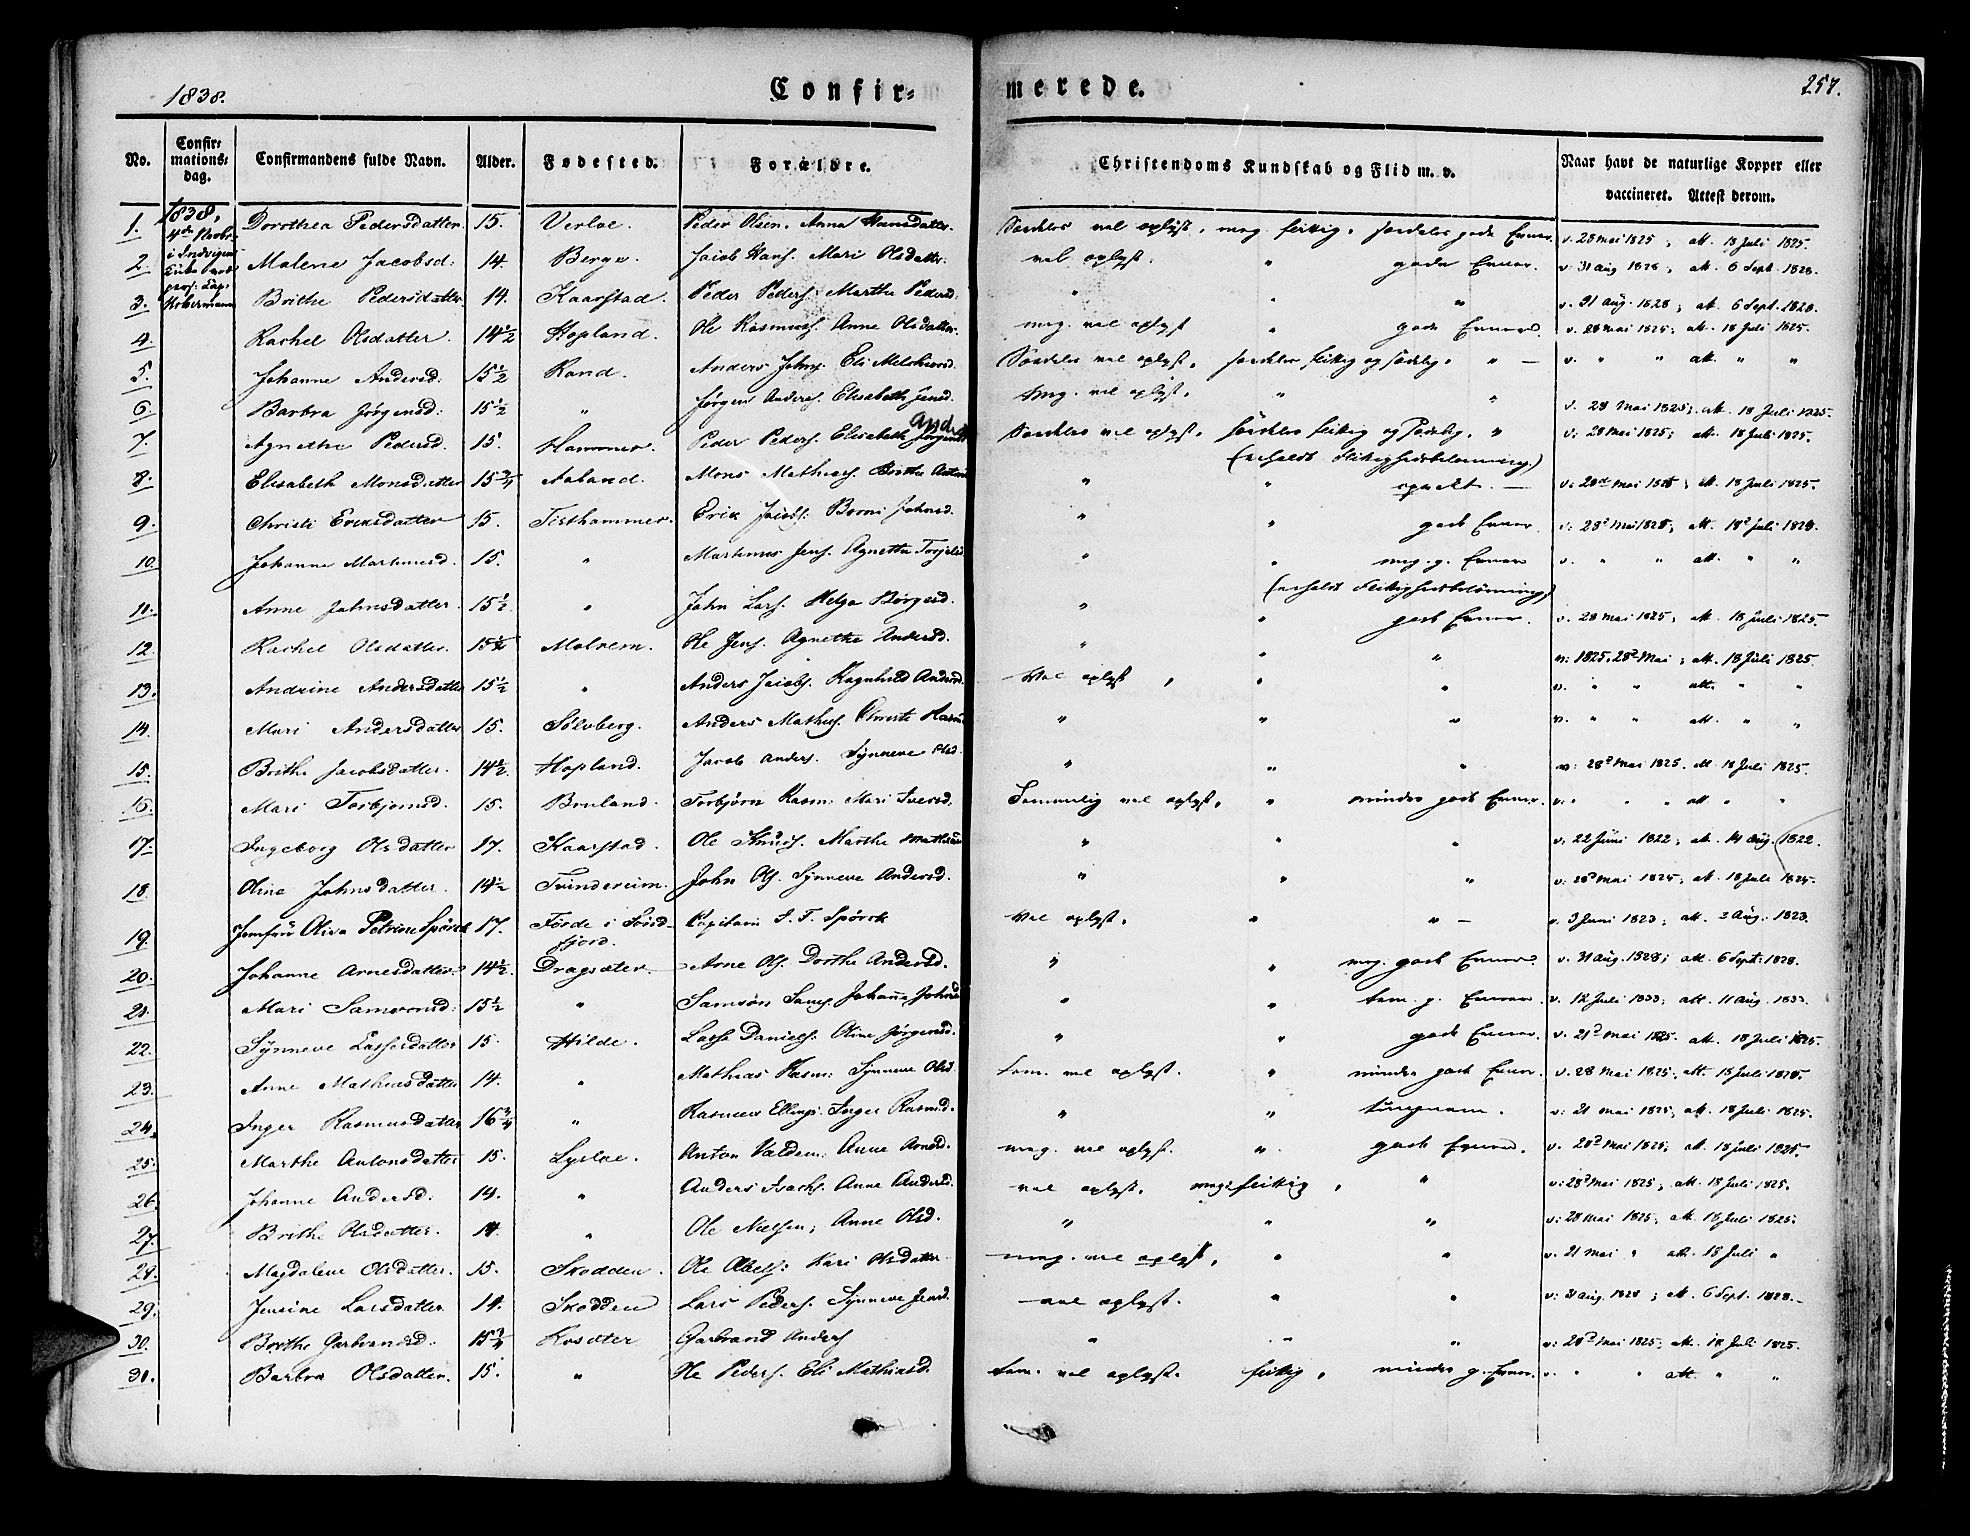 1838. Confir= merede. 257.
No. Confirmationsdag. Confirmandens fulde Navn. Alder. Fødested. Forældre. Christendoms Kundskab og Flid m. v. Naar havt de naturlige Kopper eller vaccineret. Attest derom.
1. 1838, Dorothea Pedersdatter 15. Verloe. Peder Olsen. Anna Hansdatter. Særdeles vel oplyst, meg. flittig, særdeles gode Evner v. 28 Mai 1825; att. 18 Juli 1825.
2. Malene Jacobsd: 14. Berge. Jacob Hans. Mari Olsdatter. vel oplyst. " gode Evner. v: 31 Aug 1828; att. 6 Sept. 1828.
3. Brithe Pedersdatter 14. Kaarstad. Peder Peders. Marthe Pedersd: " " " v. 31 Aug. 1828; att. 6 Sept. 1828.
4. Rachel Olsdatter. 14½ Hopland. Ole Rasmus. Anne Olsdatter. meg. vel oplyst " gode Evner v. 28 Mai 1825; att. 18 Juli 1825.
5. Johanne Andersd: 15½ Rand. Anders Johns. Eli Melchiorsd. Særdeles vel oplyst, særdeles flittig og sædelig, " — v. " " att. " "
6. Barbra Jørgensd: 15½ " Jørgen Anders. Elisabeth Jensd. Meg. vel oplyst, " " v. 28 Mai 1825; att. 18 Juli 1825.
7. Agnethe Pedersd. 15. Hammer. Peder Peders. Elisabeth Jørgensd Særdeles vel oplyst, særdeles flittig og sædelig, " v: 28 Mai 1825; att. 18 Juli 1825.
(erholdt Flittighedsbelønning)
8. Elisabeth Monsdatter 15¾ Aaland. Mons Mathias. Brithe " " — v: 28de Mai 1825; att. 18 Juli 1825.
9. Christi Ericsdatter 15. Tisthammer. Erik Jacobs: Berni Johnsd. " " gode Evner. v: 28d Mai 1828; att. 18d Juli 1828.
10. Johanne Martinusd. 15. " Martinus Jens. Agnetha " " meg. g. Evner v. " " att. " "
(erholdt Flittighedsbelønning)
11. Anne Johnsdatter. 15½ " John Lars. Helga Børgesd. " " gode Evner. v. 28 Mai 1825; att. 18 Juli 1825.
12. Rachel Olsdatter. 15½ Molvem. Ole Jens. Agnethe Andersd. " " " v: 1825, 28d Mai; att. 18 Juli 1825.
13. Andrine Andersdatter 15½ " Anders Jacobs. Ragnhild Andersd. Vel oplyst, " " v. " " att. " "
14. Mari Andersdatter 15. Sølvberg. Anders Mathias. Christi " " " v. " " att. " "
15. Brithe Jacobsdatter. 14½. Hopland. Jacob Anders. Synneve Olsd. " " " v: 28d Mai 1825. att. 18 Juli 1825.
16. Mari Torbjornsd. 15. Bruland. Torbjørn Rasm: Mari Iversd. Temmelig vel oplyst, " mindre gode Evner. v: " " att. " "
17. Ingeborg Olsdatter 17. Kaarstad. Ole Knuds. Marthe " " " v: 22 Juni 1822; att. 14 Aug. 1822.
18. Oline Johnsdatter. 14½ Tvindereim. John Ols. Synneve Andersd. " " " v: 28d Mai 1825; att. 18 Juli 1825.
19. Jomfru Oliva Petrine Spørck 17. Førde i Søndfjord. Capitain S. T. Spørck Vel oplyst, " " — v. 3 Juni 1823; att. 3 Aug. 1823.
20. Johanne Arnesdatter 14½ Dragsæter. Arne Ols. Dorthe Andersd. " " meg. gode Evner. v. 31 Aug. 1828; att. 6 Sept: 1828.
21. Mari Samsonsd: 15½ " Samson Sams. Johanne Johnsd " " tem. g. Evner v. 12 Juli 1833; att. 11 Aug. 1833.
22. Synneve Lassesdatter 15. Hilde. Lasse Daniels: Oline Jørgensd. " " gode Evner. v. 21d Mai 1825. att. 18 Juli 1825.
23. Anne Mathiasdatter 14. " Mathias Rasm: Synneve Olsd. tem. vel oplyst. " mindre gode Evner. v. 28 Mai 1825; att. 18 Juli 1825.
24. Inger Rasmusdatter 16¾ " Rasmus Ellings. Inger Rasmd. " " tungnem. v: 21 Mai 1825; att. 18 Juli 1825.
25. Marthe Antonsdatter 15. Lysloe. Anton Valdem: Anne Arnesd. meg. vel oplyst. " gode Evner. v: 28d Mai 1825; att. 18 Juli 1825.
26. Johanne Andersd. 14. " Anders Isachs. Anne Andersd. vel oplyst, meg: flittig, " v: 28d Mai 1825; att. 18 Juli 1825.
27. Brithe Olsdatter. 14. " Ole Nielsen; Anne Olsd. " " " v: 28 Mai 1825; att. 18 Juli 1825.
28. Magdalene Olsdatter. 15. Skodden. Ole Abels: Kari Olsdatter meg. vel oplyst, " " v: 21 Mai " att. 18 Juli "
29. Jensine Larsdatter. 14. Skodden Lars Peders. Synneve Jensd. vel oplyst. " " v: 31 Aug. 1828; att. 6 Sept. 1828.
30. Brithe Garbrandsd: 15¾ Kvsæter Garbrand Anders " " " v: 28d Mai 1825; att. 18 Juli 1825.
31. Barbra Olsdatter. 15. " Ole Peders. Eli Mathiasd. tem. vel oplyst. flittig, mindre g. Evner. v. " " att. " "